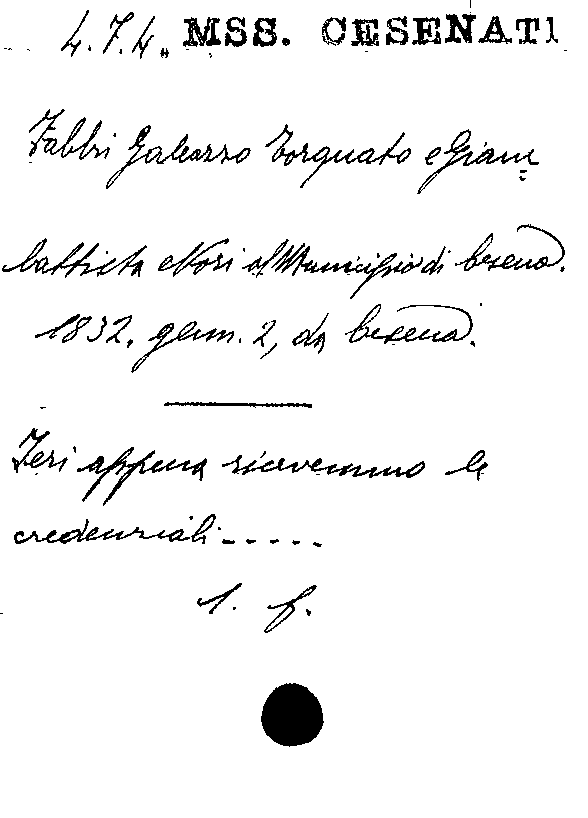 4.7.4. MSS. CESENATI
Fabbri Galeazzo Torquato e Giam=
battista Nori al Municipio di Cesena.
1832, genn. 2, da Cesena.
Ieri appena ricevemmo le
credenziali-----
1. f.